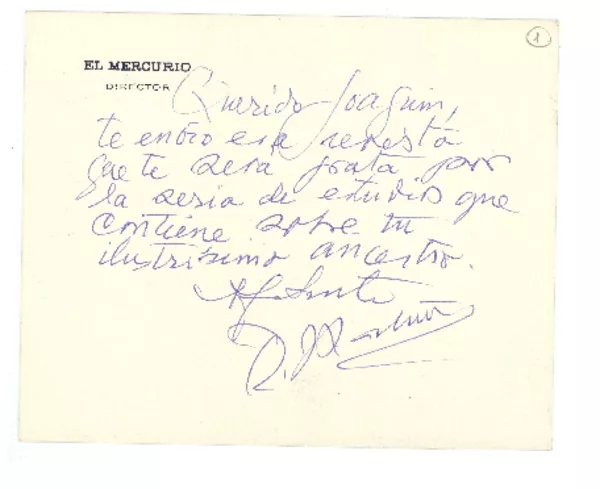 1
EL MERCURIO
DIRECTOR
Querido Joaquín,
te envío esa revista
que te será grata por
la seria de estudios que
contiene sobre tu
ilustrísimo ancestro.
R.